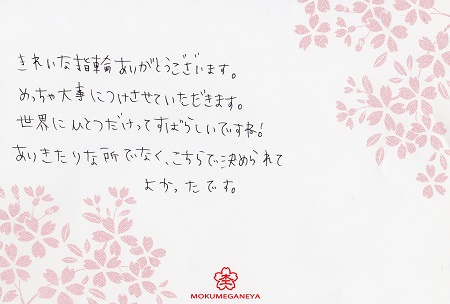 きれいな指輪ありがとうございます。
めっちゃ大事につけさせていただきます。
世界にひとつだけってすばらしいですね!
ありきたりな所でなく、こちらで決められて
よかったです。
MOKUMEGANEYA